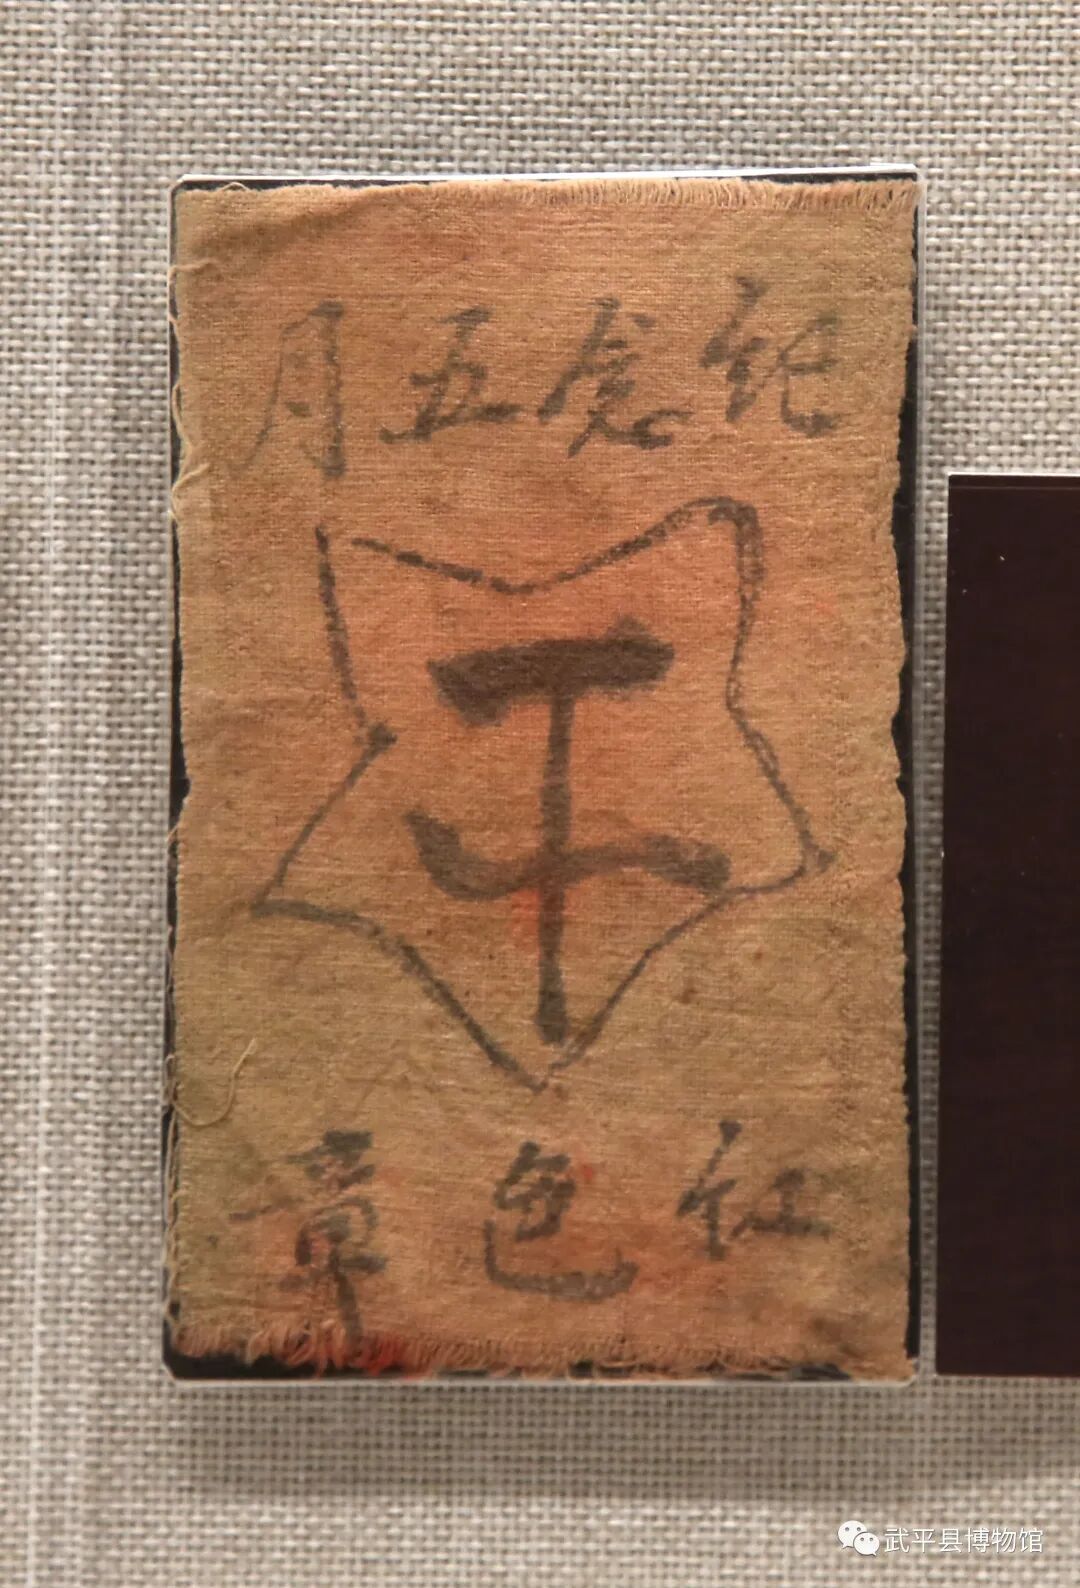 纪念五月
红色章
武平县博物馆